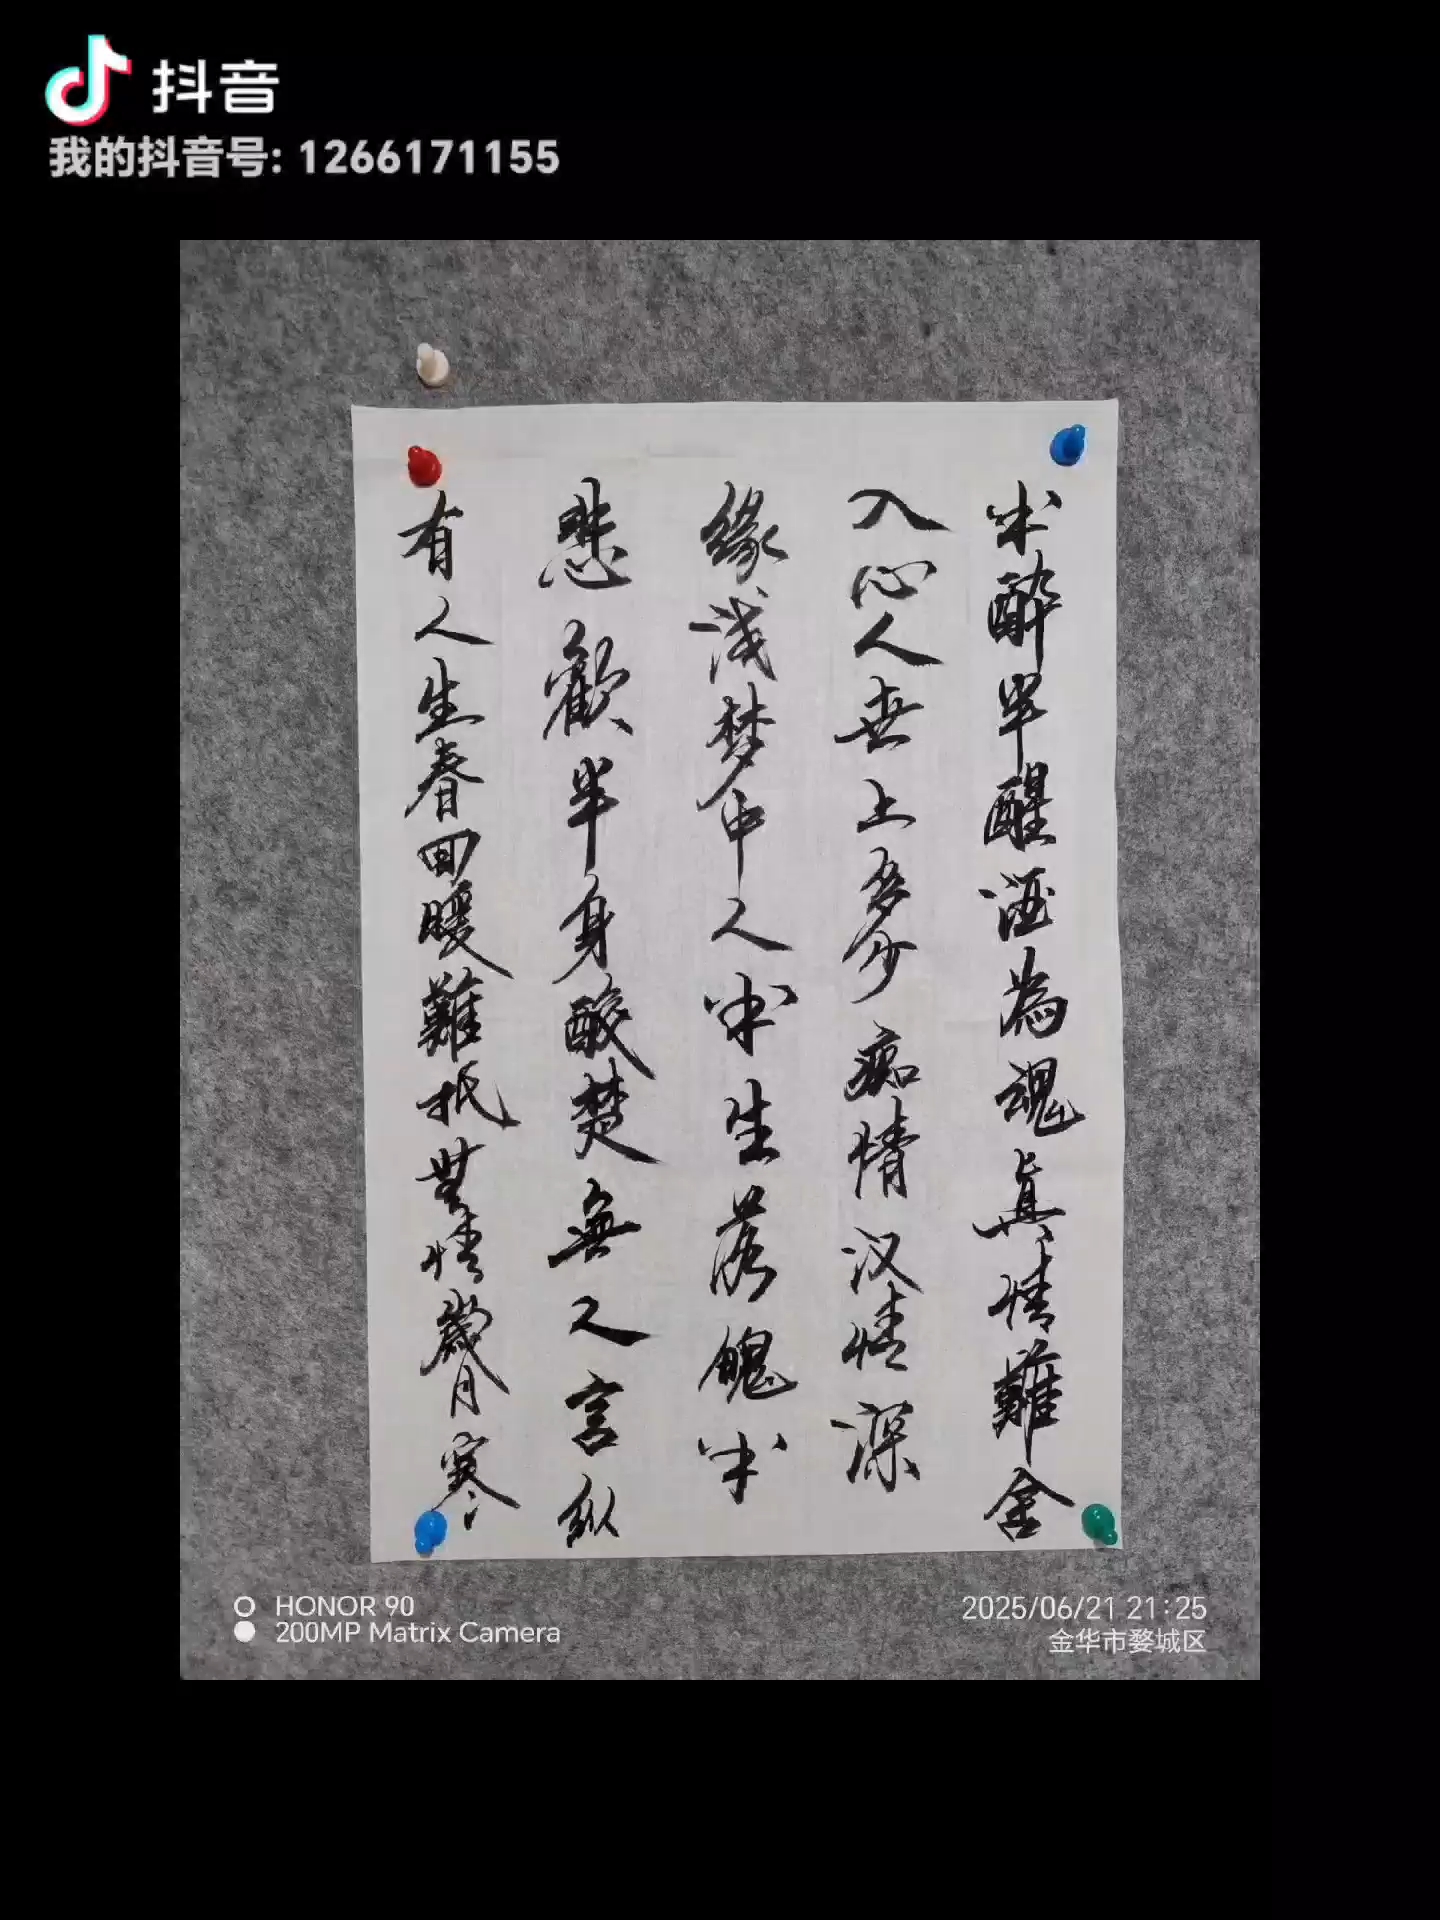 抖音
我的抖音号: 1266171155
半醉半醒酒為魂真情難舍
入心人世上多少痴情汉情深
缘浅梦中人半生落魄半
悲歡半身酸楚無人言纵
有人生春回暖難抵無情歲月寒
HONOR 90
200MP Matrix Camera
2025/06/21 21:25
金华市婺城区